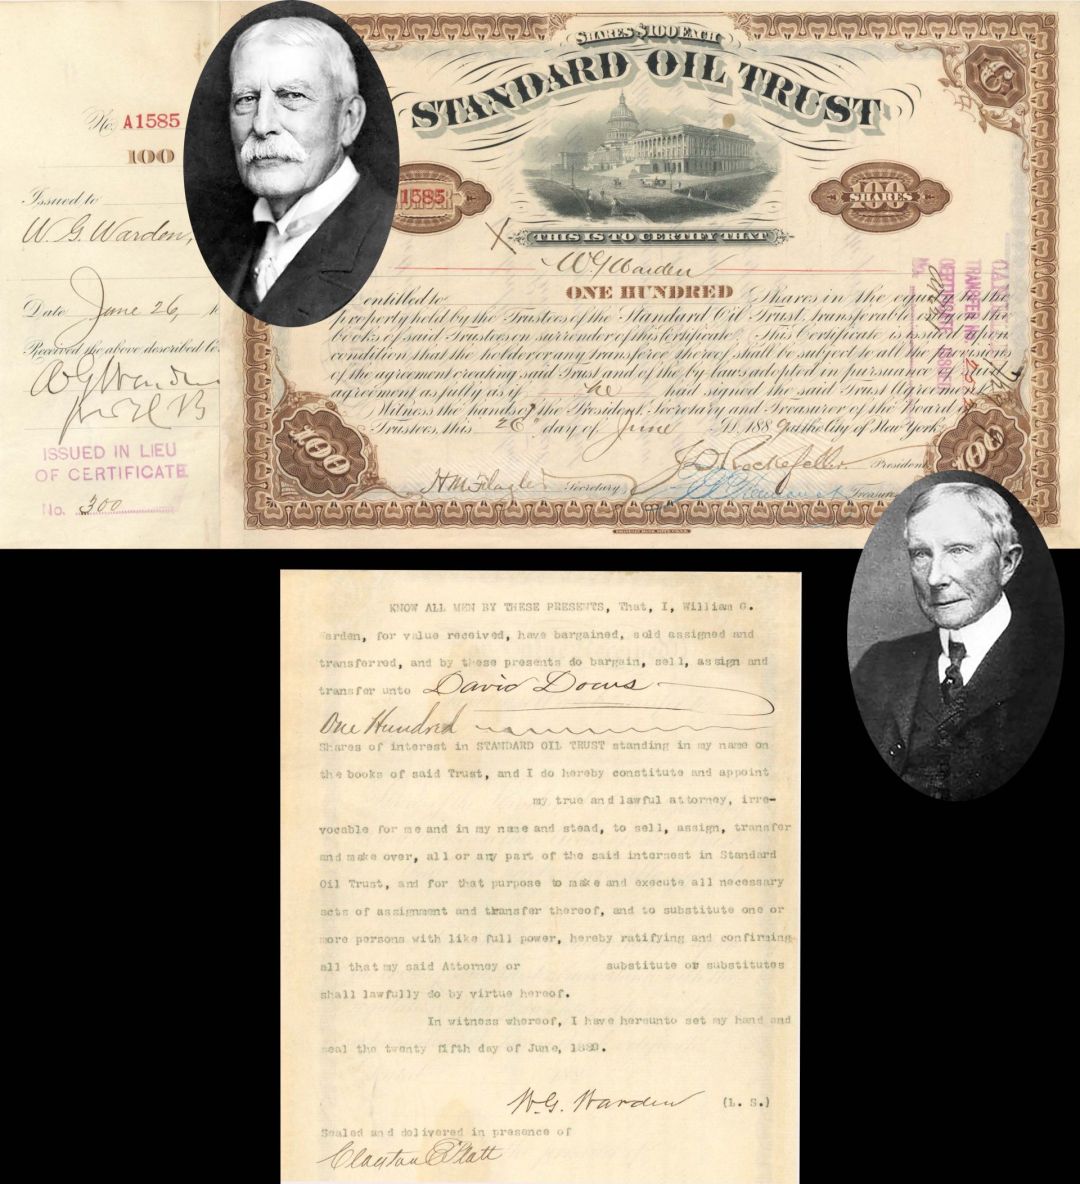 No. A1585
100
Issued to
W. G. Warden,
Date June 26,
Received the above described
W G Warden
ISSUED IN LIEU
OF CERTIFICATE
No. 300
SHARES $100 EACH
STANDARD OIL TRUST
1585
100
SHARES
THIS IS TO CERTIFY THAT
W G Warden
entitled to ONE HUNDRED Shares in the equity to the
property held by the Trustees of the Standard Oil Trust, transferable upon the
books of said Trustees on surrender of this Certificate. This Certificate is issued upon
condition that the holder or any transferee thereof shall be subject to all the provisions
of the agreement creating said Trust and of the by-laws adopted in pursuance of said
agreement as fully as if he had signed the said Trust Agreement.
Witness the hands of the President, Secretary and Treasurer of the Board of
Trustees, this 26th day of June A.D. 1889 at the City of New York.
J D Rockefeller President
H M Flagler Secretary Treasurer
100
100
TRANSFER NO
CERTIFICATE ISSUED
No.
KNOW ALL MEN BY THESE PRESENTS, That, I, William G.
Warden, for value received, have bargained, sold assigned and
transferred, and by these presents do bargain, sell, assign and
transfer unto David Dows
One Hundred
Shares of interest in STANDARD OIL TRUST standing in my name on
the books of said Trust, and I do hereby constitute and appoint
my true and lawful attorney, irre-
vocable for me and in my name and stead, to sell, assign, transfer
and make over, all or any part of the said interest in Standard
Oil Trust, and for that purpose to make and execute all necessary
acts of assignment and transfer thereof, and to substitute one or
more persons with like full power, hereby ratifying and confirming
all that my said Attorney or substitute or substitutes
shall lawfully do by virtue hereof.
In witness whereof, I have hereunto set my hand and
seal the twenty fifth day of June, 1889.
W. G. Warden (L. S.)
Sealed and delivered in presence of
Clayton E Platt